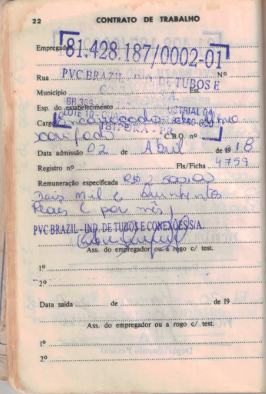 22 CONTRATO DE TRABALHO
Empregador 81.428.187/0002-01
Rua PVC BRAZIL IND. DE TUBOS E Nº
Município Est.
Esp. do estabelecimento
Cargo
C.B.O. nº
Data admissão 02 de Abril de 19 18
Registro nº Fls/Ficha 4759
Remuneração especificada R$ 2.500,00
Dois mil e quinhentos
Reais (por mês)
PVC BRAZIL - IND. DE TUBOS E CONEXÕES S/A.
Ass. do empregador ou a rogo c/ test.
1º
2º
Data saída de de 19
Ass. do empregador ou a rogo c/ test.
1º
2º